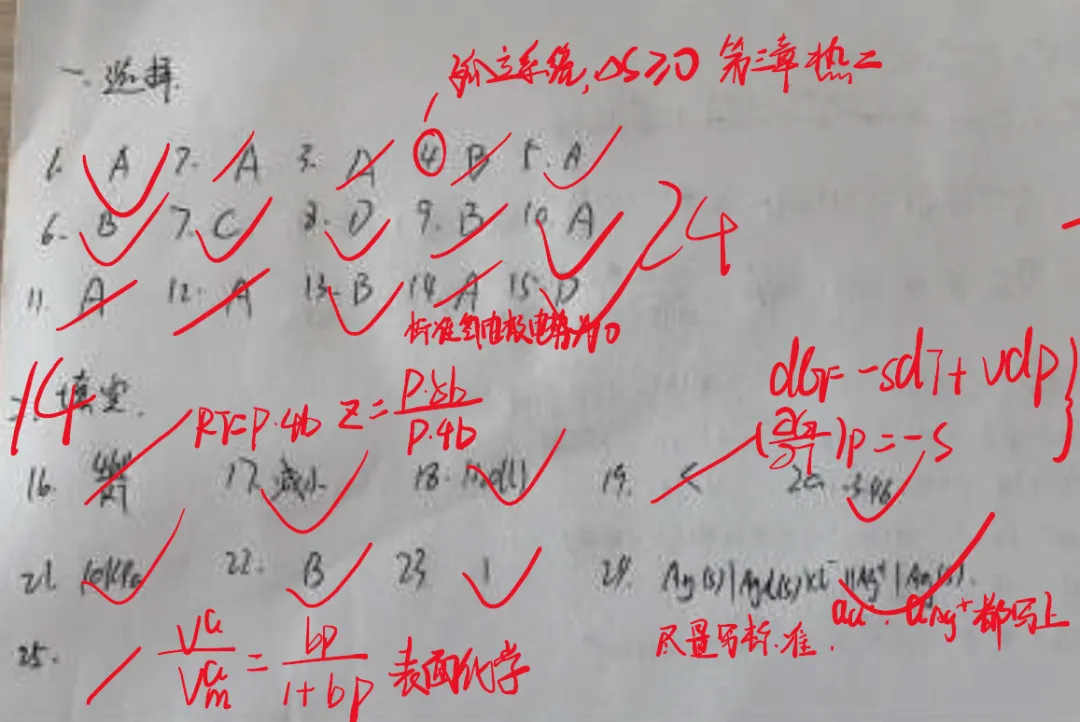 一. 选择
孤立系统, ΔS≥0 第三章 热二
1. A 2. A 3. D 4 B 5. A
6. B 7. C 8. D 9. B 10. A
24
11. A 12. A 13. B 14 A 15. D
标准氢电极电势为0
14
二. 填空.
RT=P·4b Z=P·8b/P·4b
dG=-SdT+Vdp
(∂G/∂T)p=-S
16. 17. 减小 18. 19. < 20
21. 101kPa 22. B 23 1 24. Ag(s)|AgCl(s)|Cl⁻||Ag⁺|Ag(s).
尽量写标准. aCl⁻ aAg⁺都写上
25. Vᵃ/Vᵃm = bp/1+bp 表面化学